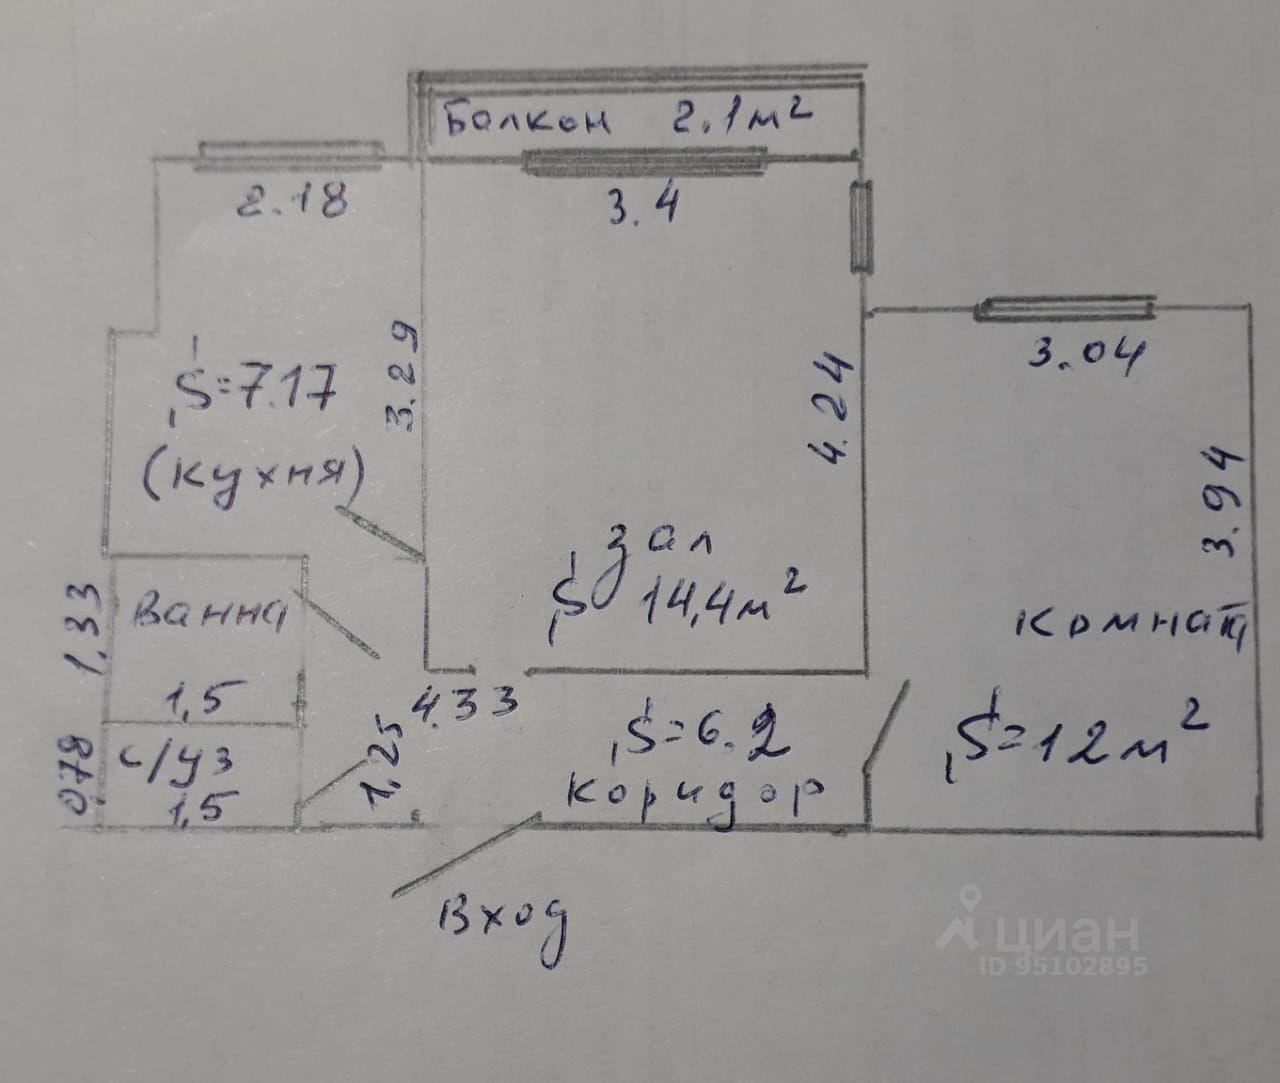 Балкон 2.1м²
2.18
3.4
3.29
S=7.17
(кухня)
4.24
3.04
3.94
зал
S 14,4м²
комнат
S=12м²
Ванна
1,33
1,5
с/уз
0,78
1,5
4.33
1,25
S=6.2
коридор
Вход
циан
ID 95102895